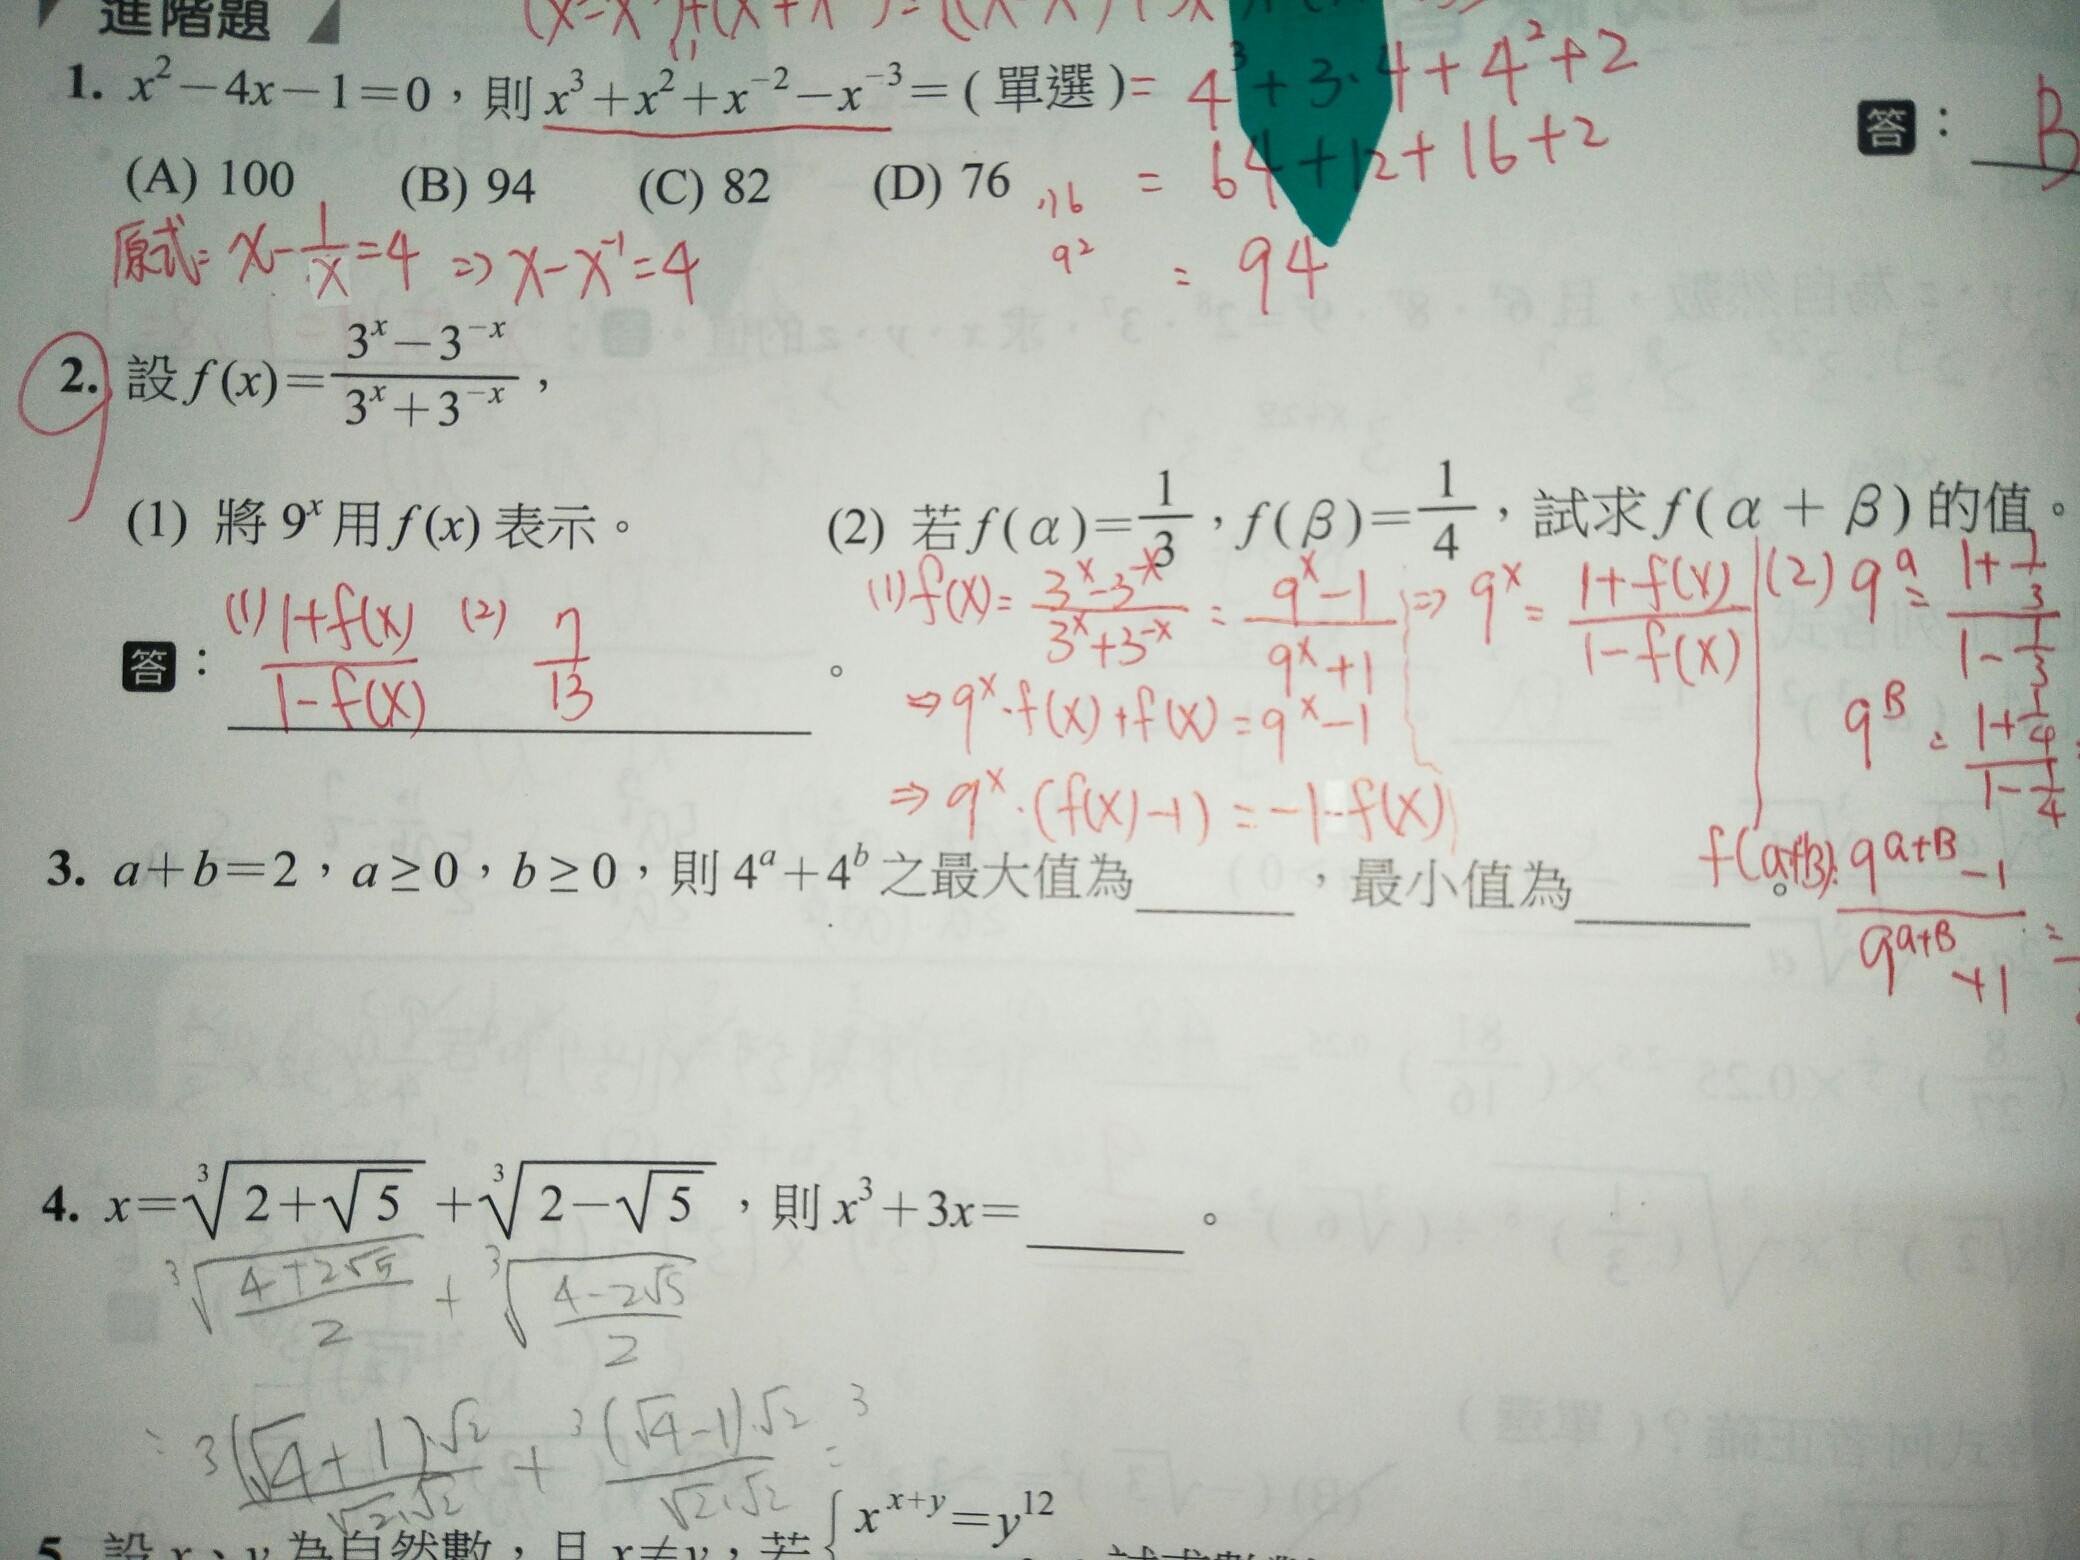 進階題
1. x²－4x－1＝0，則 x³＋x²＋x⁻²－x⁻³＝(單選)= 4³+3·4+4²+2
答： B
(A) 100 (B) 94 (C) 82 (D) 76
= 64+12+16+2
原式= x-1/x=4 => x-x⁻¹=4
= 94
2. 設 f(x)＝(3ˣ－3⁻ˣ)/(3ˣ＋3⁻ˣ)，
(1) 將 9ˣ 用 f(x) 表示。 (2) 若 f(α)＝1/3，f(β)＝1/4，試求 f(α＋β) 的值。
答： (1) (1+f(x))/(1-f(x)) (2) 7/13 。
(1) f(x)= (3ˣ-3⁻ˣ)/(3ˣ+3⁻ˣ) = (9ˣ-1)/(9ˣ+1)
=> 9ˣ·f(x)+f(x)=9ˣ-1
=> 9ˣ·(f(x)-1)=-1-f(x)
=> 9ˣ= (1+f(x))/(1-f(x))
(2) 9ᵃ= (1+1/3)/(1-1/3)
9ᴮ= (1+1/4)/(1-1/4)
f(a+B)= (9ᵃ⁺ᴮ-1)/(9ᵃ⁺ᴮ+1) =
3. a＋b＝2，a≥0，b≥0，則 4ᵃ＋4ᵇ 之最大值為＿＿＿，最小值為＿＿＿。
4. x＝∛(2＋√5)＋∛(2－√5)，則 x³＋3x＝＿＿＿。
∛((4+2√5)/2) + ∛((4-2√5)/2)
= 3 (√4+1)·√2/(√2·√2) + 3 (√4-1)·√2/(√2·√2) =
5. 設 x、y 為自然數，且 x≠y，若{xˣ⁺ʸ＝y¹²